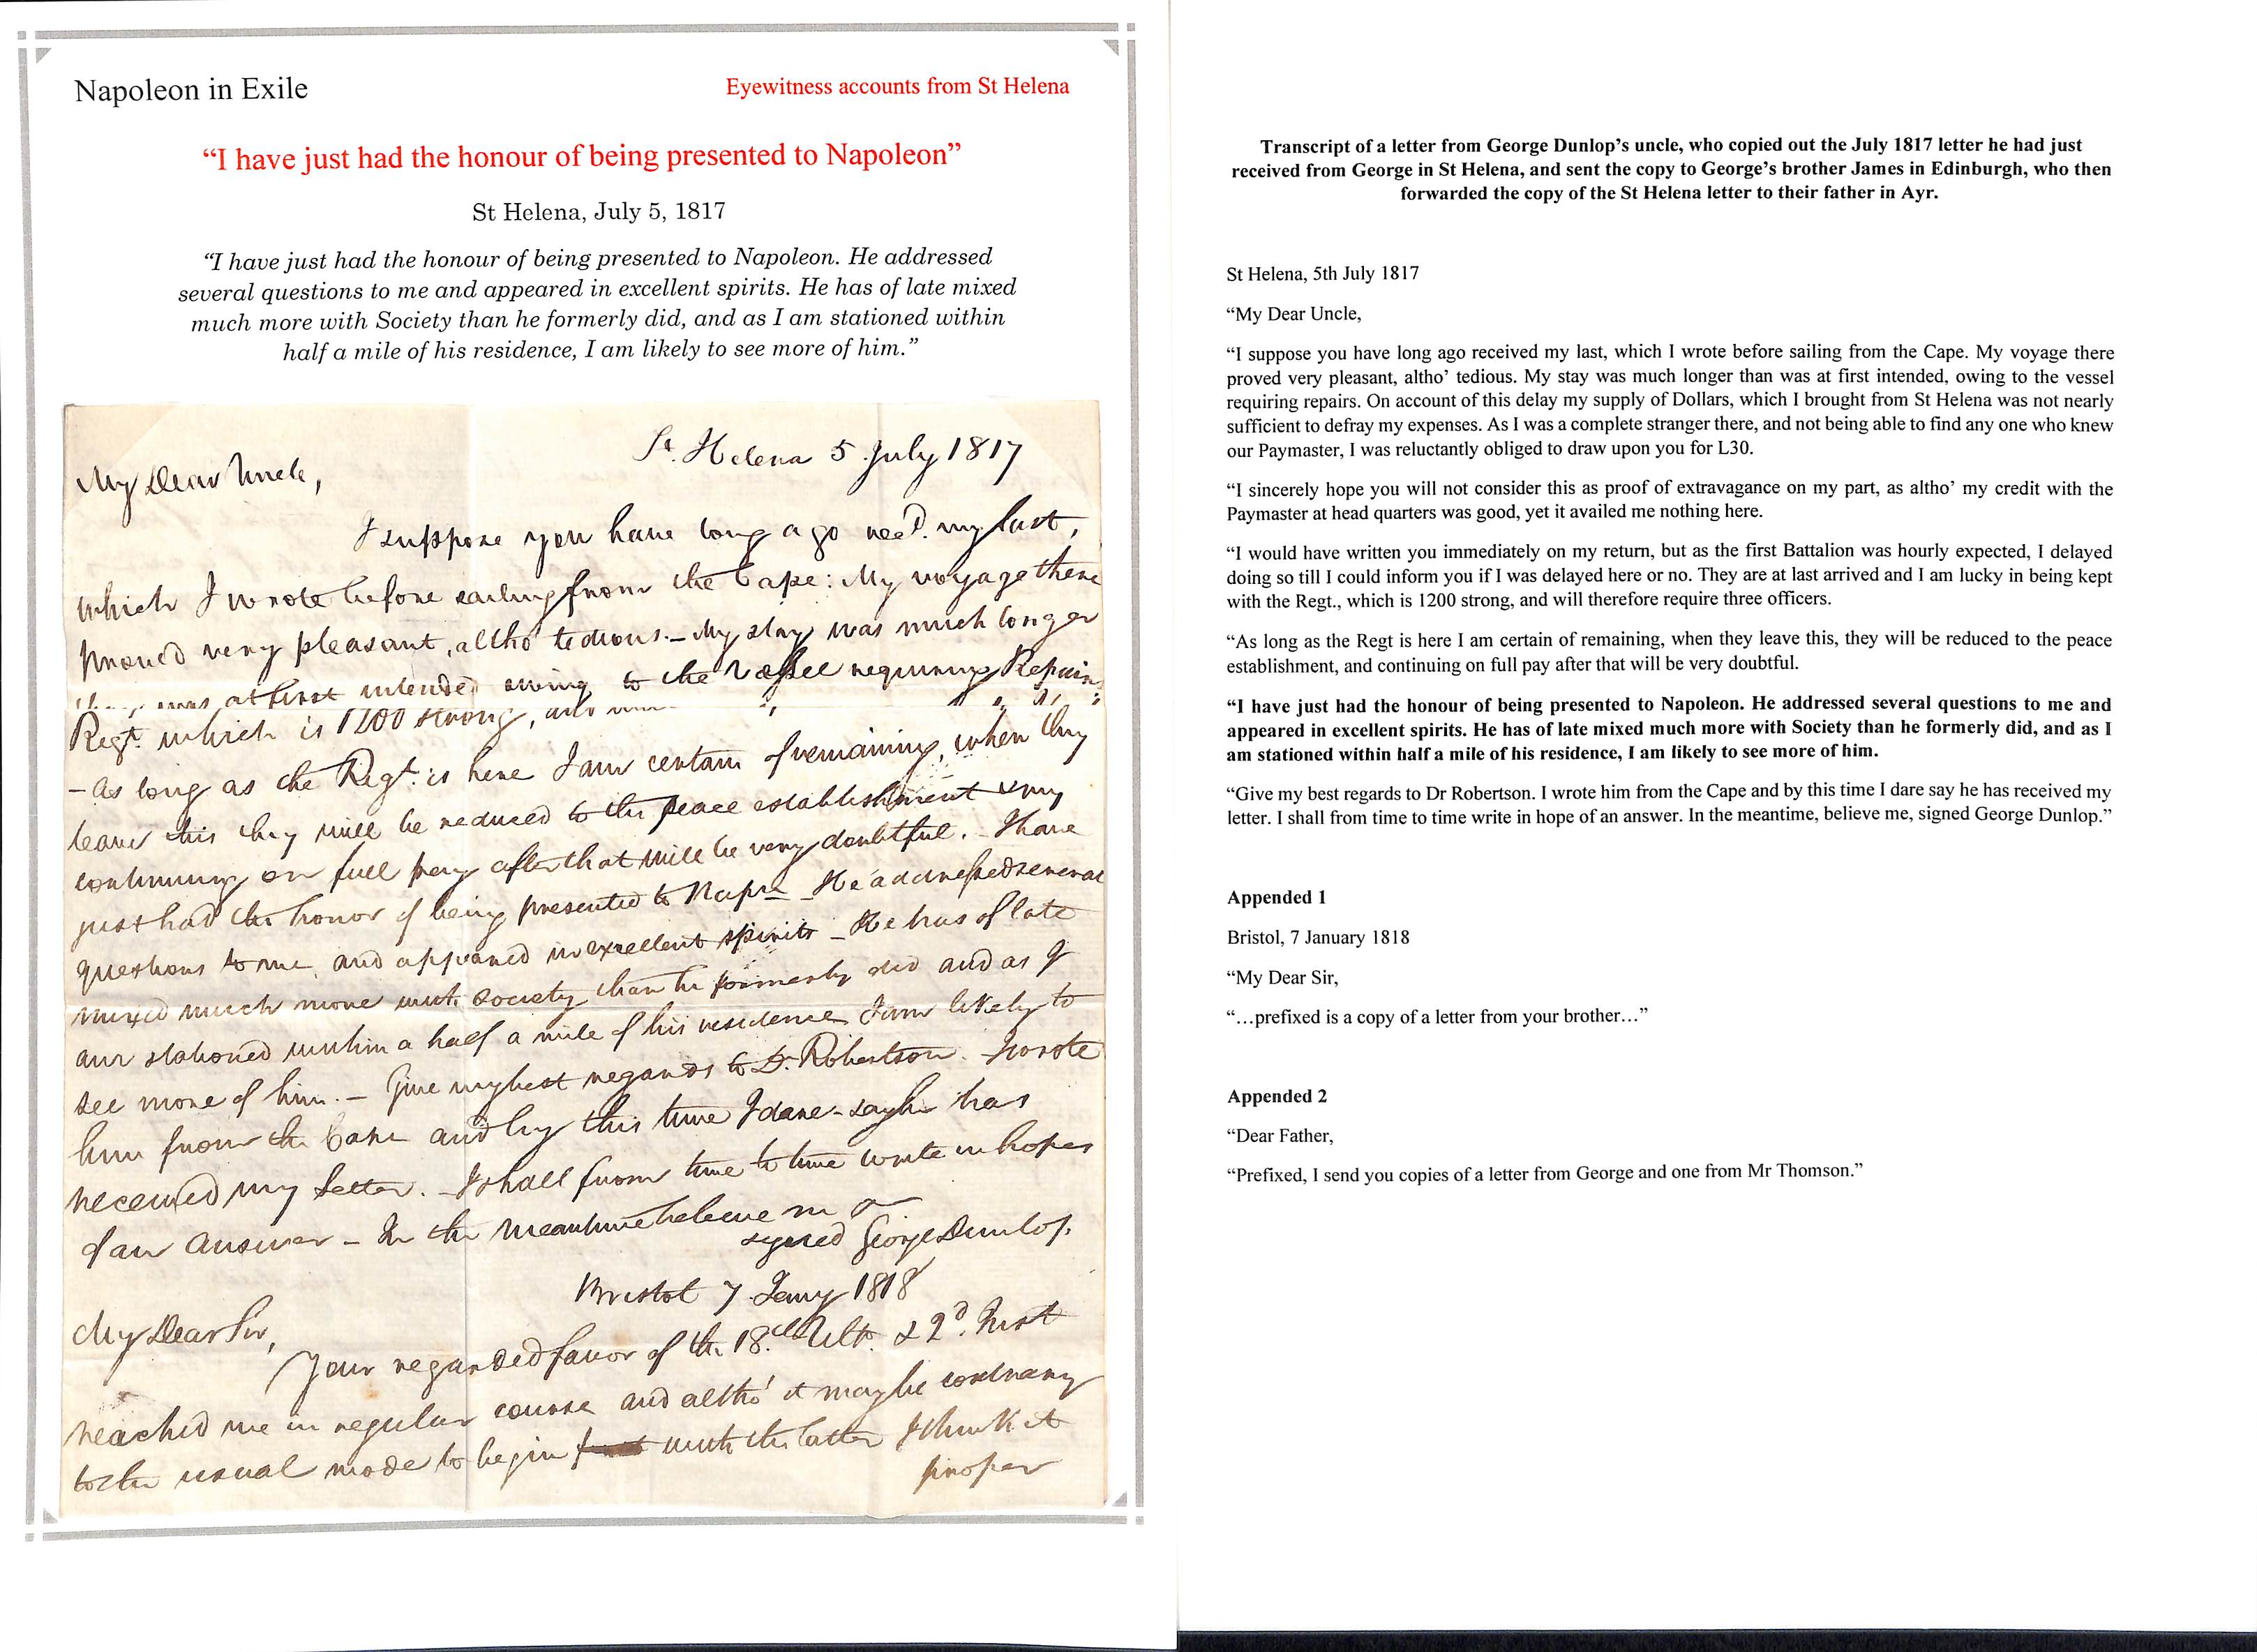 Napoleon in Exile
Eyewitness accounts from St Helena
“I have just had the honour of being presented to Napoleon”
St Helena, July 5, 1817
“I have just had the honour of being presented to Napoleon. He addressed
several questions to me and appeared in excellent spirits. He has of late mixed
much more with Society than he formerly did, and as I am stationed within
half a mile of his residence, I am likely to see more of him.”
St. Helena 5 July 1817
My Dear Uncle,
I suppose you have long ago recd. my last,
which I wrote before sailing from the Cape: My voyage there
proved very pleasant, altho' tedious. – My stay was much longer
than was at first intended owing to the Vessel requiring Repairs
Regt. which is 1200 strong, and
– As long as the Regt. is here I am certain of remaining, when they
leave this they will be reduced to the peace establishment & my
continuing on full pay after that will be very doubtful. – I have
just had the honor of being presented to Napn – He addressed several
questions to me, and appeared in excellent spirits – He has of late
mixed much more with society than he formerly did and as I
am stationed within a half a mile of his residence I am likely to
see more of him. – Give my best regards to Dr. Robertson. I wrote
him from the Cape and by this time I dare-say he has
received my letter. – I shall from time to time write in hopes
of an answer – In the meantime believe me
signed George Dunlop.
Bristol 7 Jany 1818
My Dear Sir,
Your regarded favor of the 18th. Ulto. & 2d. Inst
reached me in regular course and altho' it may be contrary
to the usual mode to begin with the latter I think it
proper
Transcript of a letter from George Dunlop’s uncle, who copied out the July 1817 letter he had just
received from George in St Helena, and sent the copy to George’s brother James in Edinburgh, who then
forwarded the copy of the St Helena letter to their father in Ayr.
St Helena, 5th July 1817
“My Dear Uncle,
“I suppose you have long ago received my last, which I wrote before sailing from the Cape. My voyage there
proved very pleasant, altho’ tedious. My stay was much longer than was at first intended, owing to the vessel
requiring repairs. On account of this delay my supply of Dollars, which I brought from St Helena was not nearly
sufficient to defray my expenses. As I was a complete stranger there, and not being able to find any one who knew
our Paymaster, I was reluctantly obliged to draw upon you for L30.
“I sincerely hope you will not consider this as proof of extravagance on my part, as altho’ my credit with the
Paymaster at head quarters was good, yet it availed me nothing here.
“I would have written you immediately on my return, but as the first Battalion was hourly expected, I delayed
doing so till I could inform you if I was delayed here or no. They are at last arrived and I am lucky in being kept
with the Regt., which is 1200 strong, and will therefore require three officers.
“As long as the Regt is here I am certain of remaining, when they leave this, they will be reduced to the peace
establishment, and continuing on full pay after that will be very doubtful.
“I have just had the honour of being presented to Napoleon. He addressed several questions to me and
appeared in excellent spirits. He has of late mixed much more with Society than he formerly did, and as I
am stationed within half a mile of his residence, I am likely to see more of him.
“Give my best regards to Dr Robertson. I wrote him from the Cape and by this time I dare say he has received my
letter. I shall from time to time write in hope of an answer. In the meantime, believe me, signed George Dunlop.”
Appended 1
Bristol, 7 January 1818
“My Dear Sir,
“…prefixed is a copy of a letter from your brother…”
Appended 2
“Dear Father,
“Prefixed, I send you copies of a letter from George and one from Mr Thomson.”